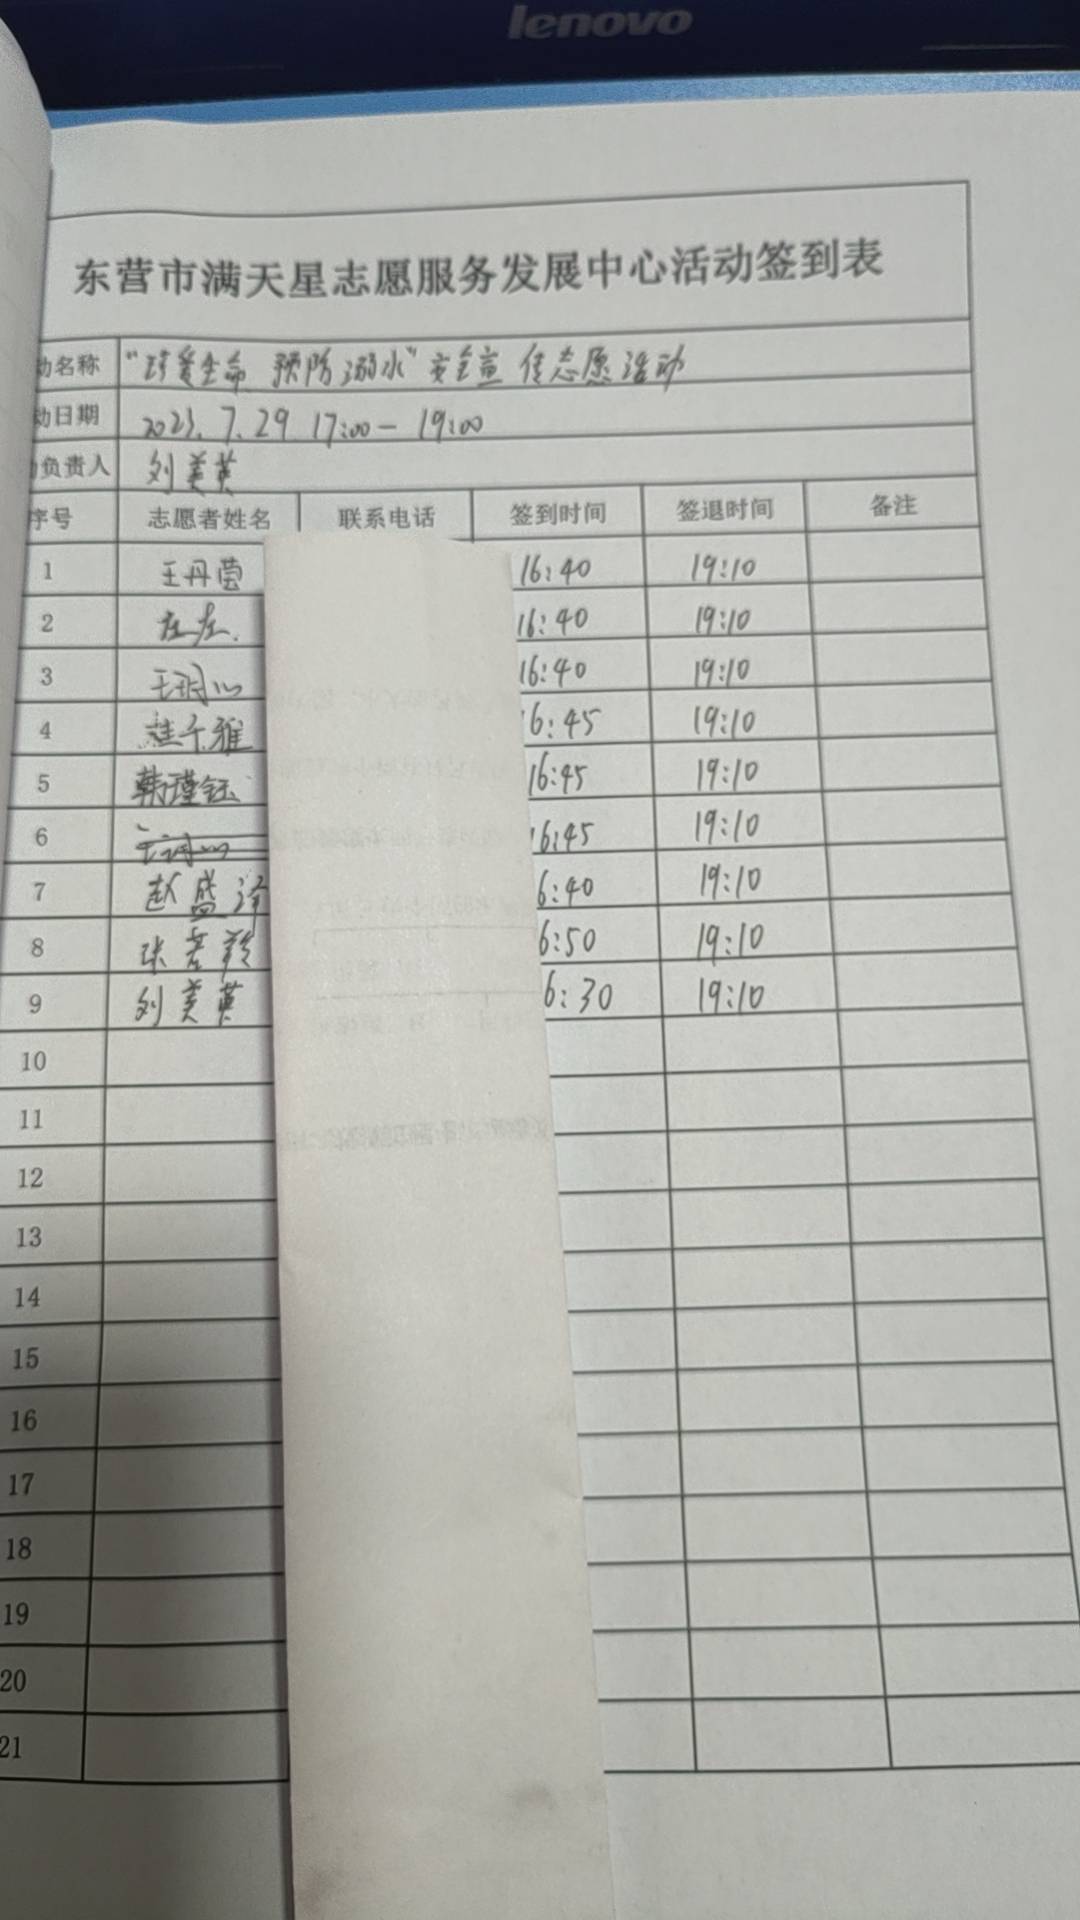 lenovo
东营市满天星志愿服务发展中心活动签到表
动名称 "珍爱生命 预防溺水"安全宣传志愿活动
动日期 2023.7.29 17:00-19:00
负责人 刘美英
序号 志愿者姓名 联系电话 签到时间 签退时间 备注
1 王丹莹 16:40 19:10
2 左左. 16:40 19:10
3 16:40 19:10
4 6:45 19:10
5 韩瑾钰 16:45 19:10
6 16:45 19:10
7 赵盛泽 6:40 19:10
8 张 6:50 19:10
9 刘美英 6:30 19:10
10
11
12
13
14
15
16
17
18
19
20
21